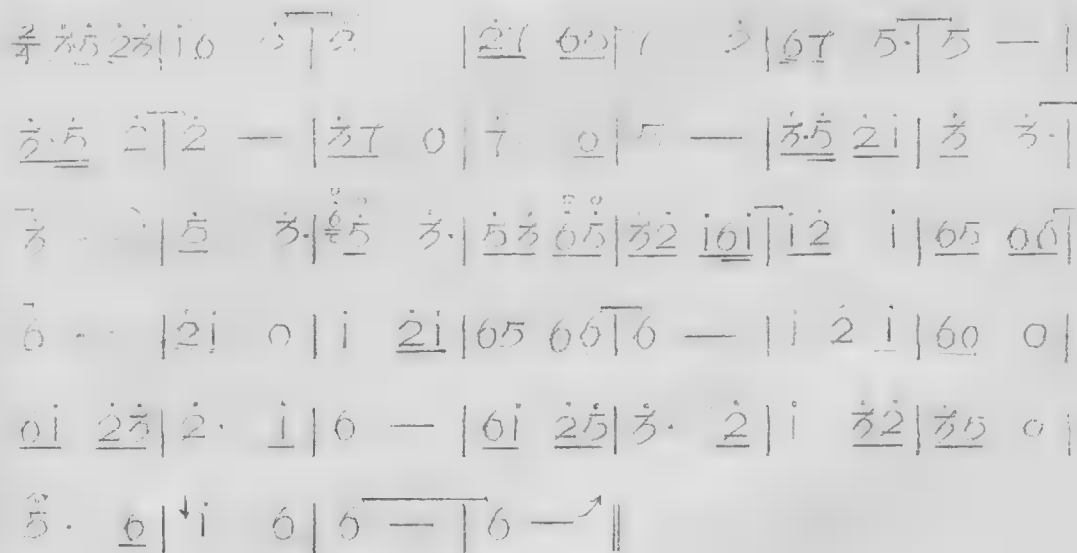 2/4 3̇5̇ 2̇3̇ | i̇6 5̇ | 2̇ | 2̇7 65 | 7 2̇ | 67 5· | 5 — |
3̇·5̇ 2̇ | 2̇ — | 3̇7 0 | 7̇ 0 | 5 — | 3̇·5̇ 2̇i | 3̇ 3̇· |
3̇ - - | 5̇ 3̇· | 6̇ 5̇ 3̇· | 5̇3̇ 6̇5̇ | 3̇2̇ i6i | i2̇ i | 65 06 |
6 - - | 2̇i 0 | i 2̇i | 65 06 | 6 — | i 2̇ i | 60 0 |
0i 2̇3̇ | 2̇· i | 6 — | 6i 2̇5̇ | 3̇· 2̇ | i 3̇2̇ | 3̇5 0 |
5̇· 6 | ↓i 6 | 6 — | 6 — ↗ ‖